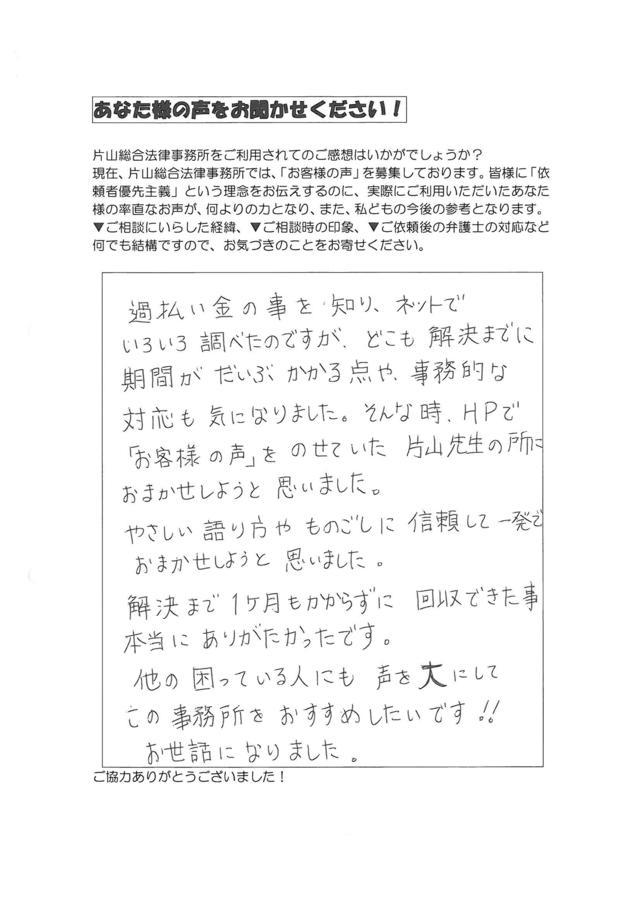 あなた様の声をお聞かせください！
片山総合法律事務所をご利用されてのご感想はいかがでしょうか？
現在、片山総合法律事務所では、「お客様の声」を募集しております。皆様に「依
頼者優先主義」という理念をお伝えするのに、実際にご利用いただいたあなた
様の率直なお声が、何よりの力となり、また、私どもの今後の参考となります。
▼ご相談にいらした経緯、▼ご相談時の印象、▼ご依頼後の弁護士の対応など
何でも結構ですので、お気づきのことをお寄せください。
過払い金の事を知り、ネットで
いろいろ調べたのですが、どこも解決までに
期間がだいぶかかる点や、事務的な
対応も気になりました。そんな時、HPで
「お客様の声」をのせていた片山先生の所に
おまかせしようと思いました。
やさしい語り方やものごしに信頼して一発で
おまかせしようと思いました。
解決まで1ヶ月もかからずに回収できた事
本当にありがたかったです。
他の困っている人にも声を大にして
この事務所をおすすめしたいです!!
お世話になりました。
ご協力ありがとうございました！